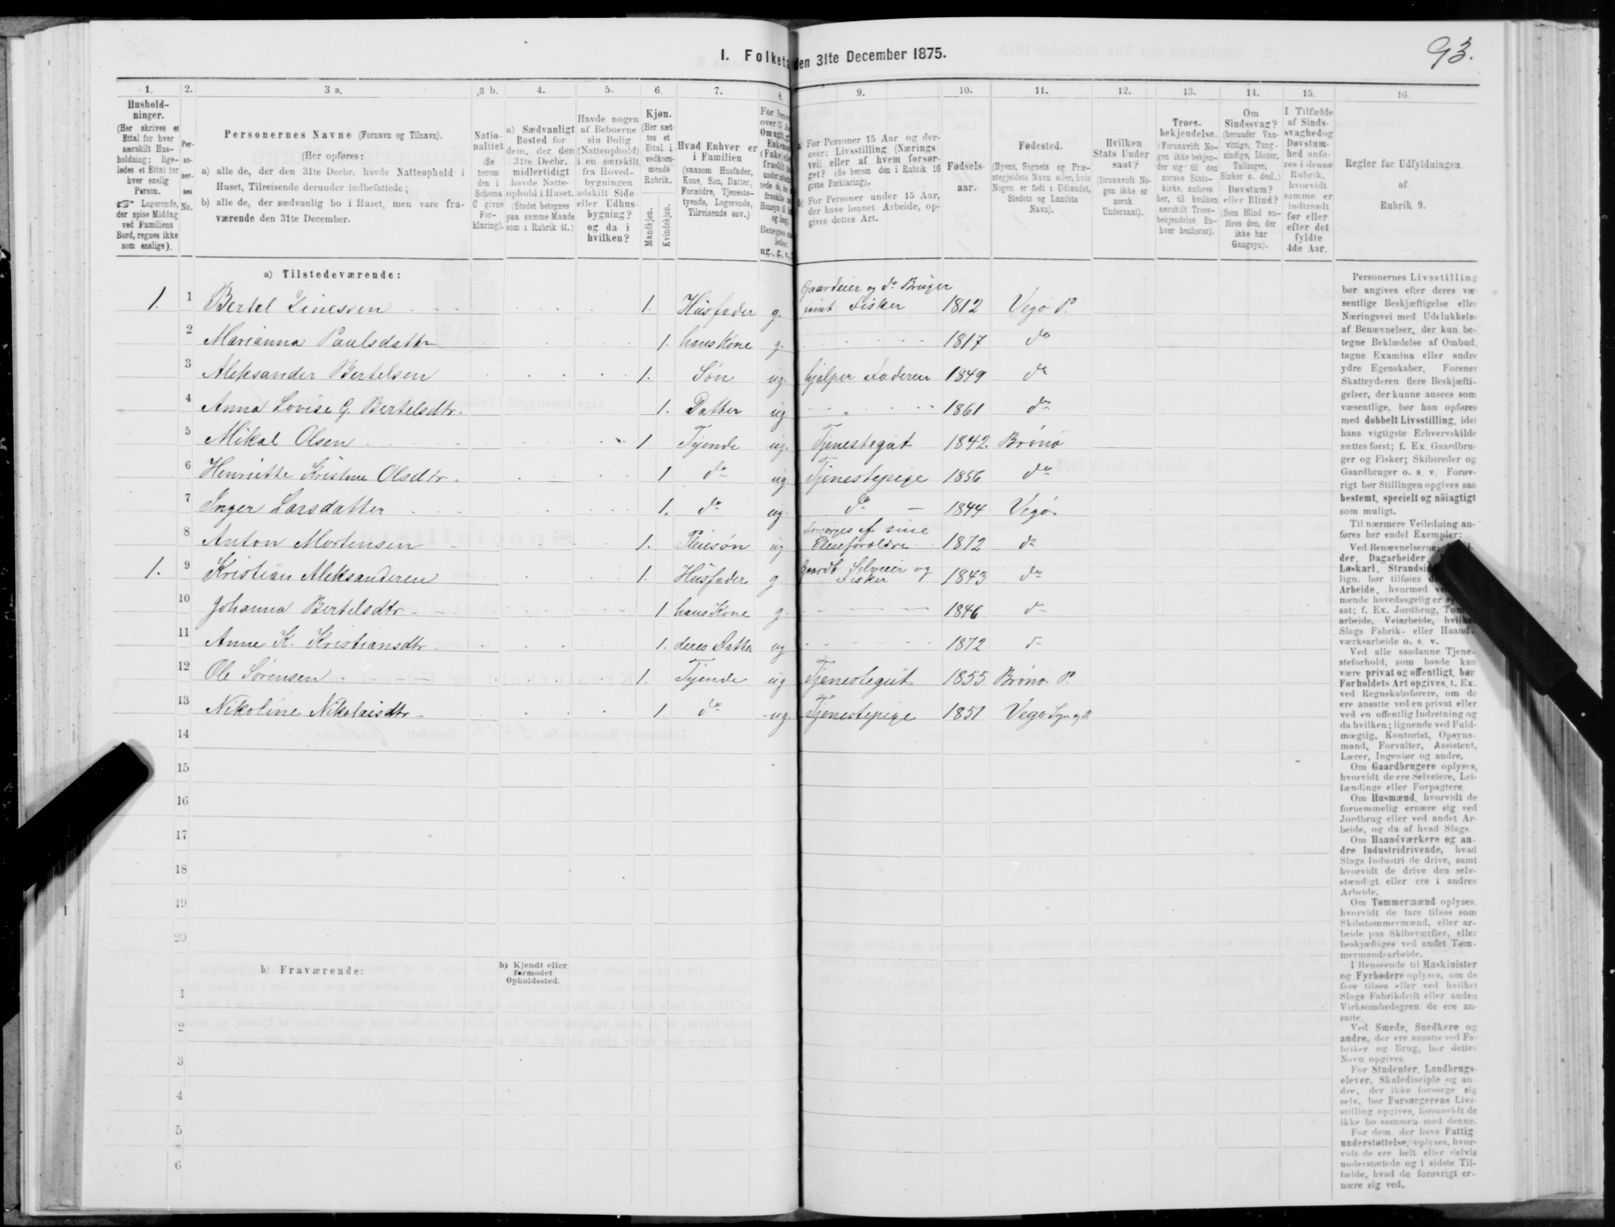 93.
I. Folketa
den 31te December 1875.
1. 2. 3 a. 3 b. 4. 5. 6. 7. 8. 9. 10. 11. 12. 13. 14. 15. 16.
Husholdninger.
(Her skrives et
Ettal for hver
særskilt Husholdning;
ligeledes et Ettal for
hver enslig
Person.
Logerende,
der spise Middag
ved Familiens
Bord, regnes ikke
som enslige).
Personernes No.
Personernes Navne (Fornavn og Tilnavn).
(Her opføres:
a) alle de, der den 31te Decbr. havde Natteophold i
Huset, Tilreisende derunder indbefattede;
b) alle de, der sædvanlig bo i Huset, men vare fraværende
den 31te December.
Nationalitet
(Se
herom
den i
Schema
6 givne
Forklaring).
a) Sædvanligt
Bosted for
dem, der den
31te Decbr.
midlertidigt
havde Natteophold i Huset.
(Stedet betegnes
paa samme Maade
som i Rubrik 11.)
Havde nogen
af Beboerne
sin Bolig
(Natteophold)
i en særskilt
fra Hovedbygningen
adskilt Side-
eller Udhusbygning?
og da i
hvilken?
Kjøn.
(Her sættes et
Ettal i
vedkommende
Rubrik.
Mandkjøn.
Kvindekjøn.
Hvad Enhver er
i Familien
(saasom Husfader,
Kone, Søn, Datter,
Forældre, Tjenestetyende, Logerende,
Tilreisende osv.)
ug., g.,
a) For Personer 15 Aar og derover: Livsstilling (Næringsvei)
eller af hvem forsørget? (Se herom den i Rubrik 16
givne Forklaring).
b) For Personer under 15 Aar,
der have lønnet Arbeide, opgives dettes Art.
Fødselsaar.
Fødested.
(Byens, Sognets og Præstegjeldets Navn eller, hvis
Nogen er født i Udlandet,
Stedets og Landets
Navn).
Hvilken
Stats Undersaat?
(forsaavidt Nogen ikke er
norsk
Undersaat).
Troesbekjendelse.
(Forsaavidt Nogen ikke bekjender sig til den
norske Statskirke, anføres
her, til hvilken
særskilt Troesbekjendelse Enhver henhører).
Om
Sindssvag?
(herunder Vanvittige, Tungsindige, Idioter,
Tullinger,
Sinker o. desl.)
Døvstum?
eller Blind?
(Som Blind anføres den, der
ikke har
Gangsyn).
I Tilfælde
af Sindssvaghed og
Døvstumhed anføres i denne
Rubrik,
hvorvidt
samme er
indtraadt
før eller
efter det
fyldte
4de Aar.
Regler for Udfyldningen
af
Rubrik 9.
a) Tilstedeværende:
1. 1 Bertel Zinessen 1. Husfader g. Gaardeier og do Bruger samt Fisker 1812 Vegø P.
2 Marianna Paulsdatter 1. hans Kone g. 1817 do
3 Aleksander Bertelsen 1. Søn ug. hjælper Faderen 1849 do
4 Anna Lovise G. Bertelsdtr. 1. Datter ug 1861 do
5 Mikal Olsen 1 Tjende ug. Tjenestegut 1842. Brønø
6 Henriette Kristine Olsdtr. 1 do ug Tjenestepige 1856 do
7 Inger Larsdatter 1. do ug do 1844 Vegø.
8 Anton Mortensen 1. Pleiesøn ug forsørges af sine Pleieforældre 1872 do
1. 9 Kristian Aleksandersen 1. Husfader g Gaardb. Selveier og Fisker 1843 do
10 Johanna Bertelsdtr. 1 hans Kone g. 1846 do
11 Anne K. Kristiansdtr 1. deres Datter ug 1872 do
12 Ole Sørensen 1. Tjende ug Tjenestegut 1855 Brønø P.
13 Nikoline Nikolaisdtr. 1 do ug. Tjenestepige 1851 Vegø
14
15
16
17
18
19
20
b) Fraværende:
b) Kjendt eller
formodet
Opholdssted.
1
2
3
4
5
6
Personernes Livsstilling
bør angives efter deres væsentlige
Beskjæftigelse eller
Næringsvei med Udelukkelse
af Benævnelser, der kun betegne
Beklædelse af Ombud,
tagne Examina eller andre
ydre Egenskaber. Forener
Skatteyderen flere Beskjæftigelser,
der kunne ansees som
væsentlige, bør han opføres
med dobbelt Livsstilling, idet
hans vigtigste Erhvervskilde
sættes først; f. Ex. Gaardbruger
og Fisker; Skibsreder og
Gaardbruger o. s. v. Forøvrigt
bør Stillingen opgives saa
bestemt, specielt og nöiagtigt
som muligt.
Til nærmere Veiledning anføres
her endel Exempler:
Ved Benævnelserne
der, Dagarbeider,
Løskarl, Strandsi
lign. bør tilføies
Arbeide, hvormed
mende hovedsagelig er
sat; f. Ex. Jordbrug,
arbeide, Veiarbeide,
Slags Fabrik- eller Haandværksarbeide o. s. v.
Ved alle saadanne Tjenesteforhold,
som baade kan
være privat og offentligt, bør
Forholdets Art opgives, t. Ex.
ved Regnskabsførere, om de
ere ansatte ved en privat eller
ved en offentlig Indretning og
da hvilken; lignende ved Fuldmægtig,
Kontorist, Opsynsmand,
Forvalter, Assistent,
Lærer, Ingeniør og andre.
Om Gaardbrugere oplyses,
hvorvidt de ere Selveiere, Leilændinge
eller Forpagtere.
Om Husmænd, hvorvidt de
fornemmelig ernære sig ved
Jordbrug eller ved andet Arbeide,
og da af hvad Slags.
Om Haandværkere og andre
Industridrivende, hvad
Slags Industri de drive, samt
hvorvidt de drive den selvstændigt
eller ere i andres
Arbeide.
Om Tømmermænd oplyses,
hvorvidt de fare tilsøs som
Skibstømmermænd, eller arbeide
paa Skibsværfter, eller
beskjæftiges ved andet Tømmermandsarbeide.
I Henseende til Maskinister
og Fyrbødere oplyses, om de
fare tilsøs eller ved hvilket
Slags Fabrikdrift eller anden
Virksomhedsgren de ere ansatte.
Ved Smede, Snedkere og
andre, der ere ansatte ved Fabriker
og Brug, bør dettes
Navn opgives.
For Studenter, Landbrugselever,
Skoledisciple og andre,
der ikke forsørge sig
selv, bør Forsørgerens Livsstilling
opgives, forsaavidt de
ikke bo sammen med denne.
For dem, der have Fattigunderstøttelse,
oplyses, hvorvidt
de ere helt eller delvis
understøttede og i sidste Tilfælde,
hvad de forøvrigt ernære sig ved.